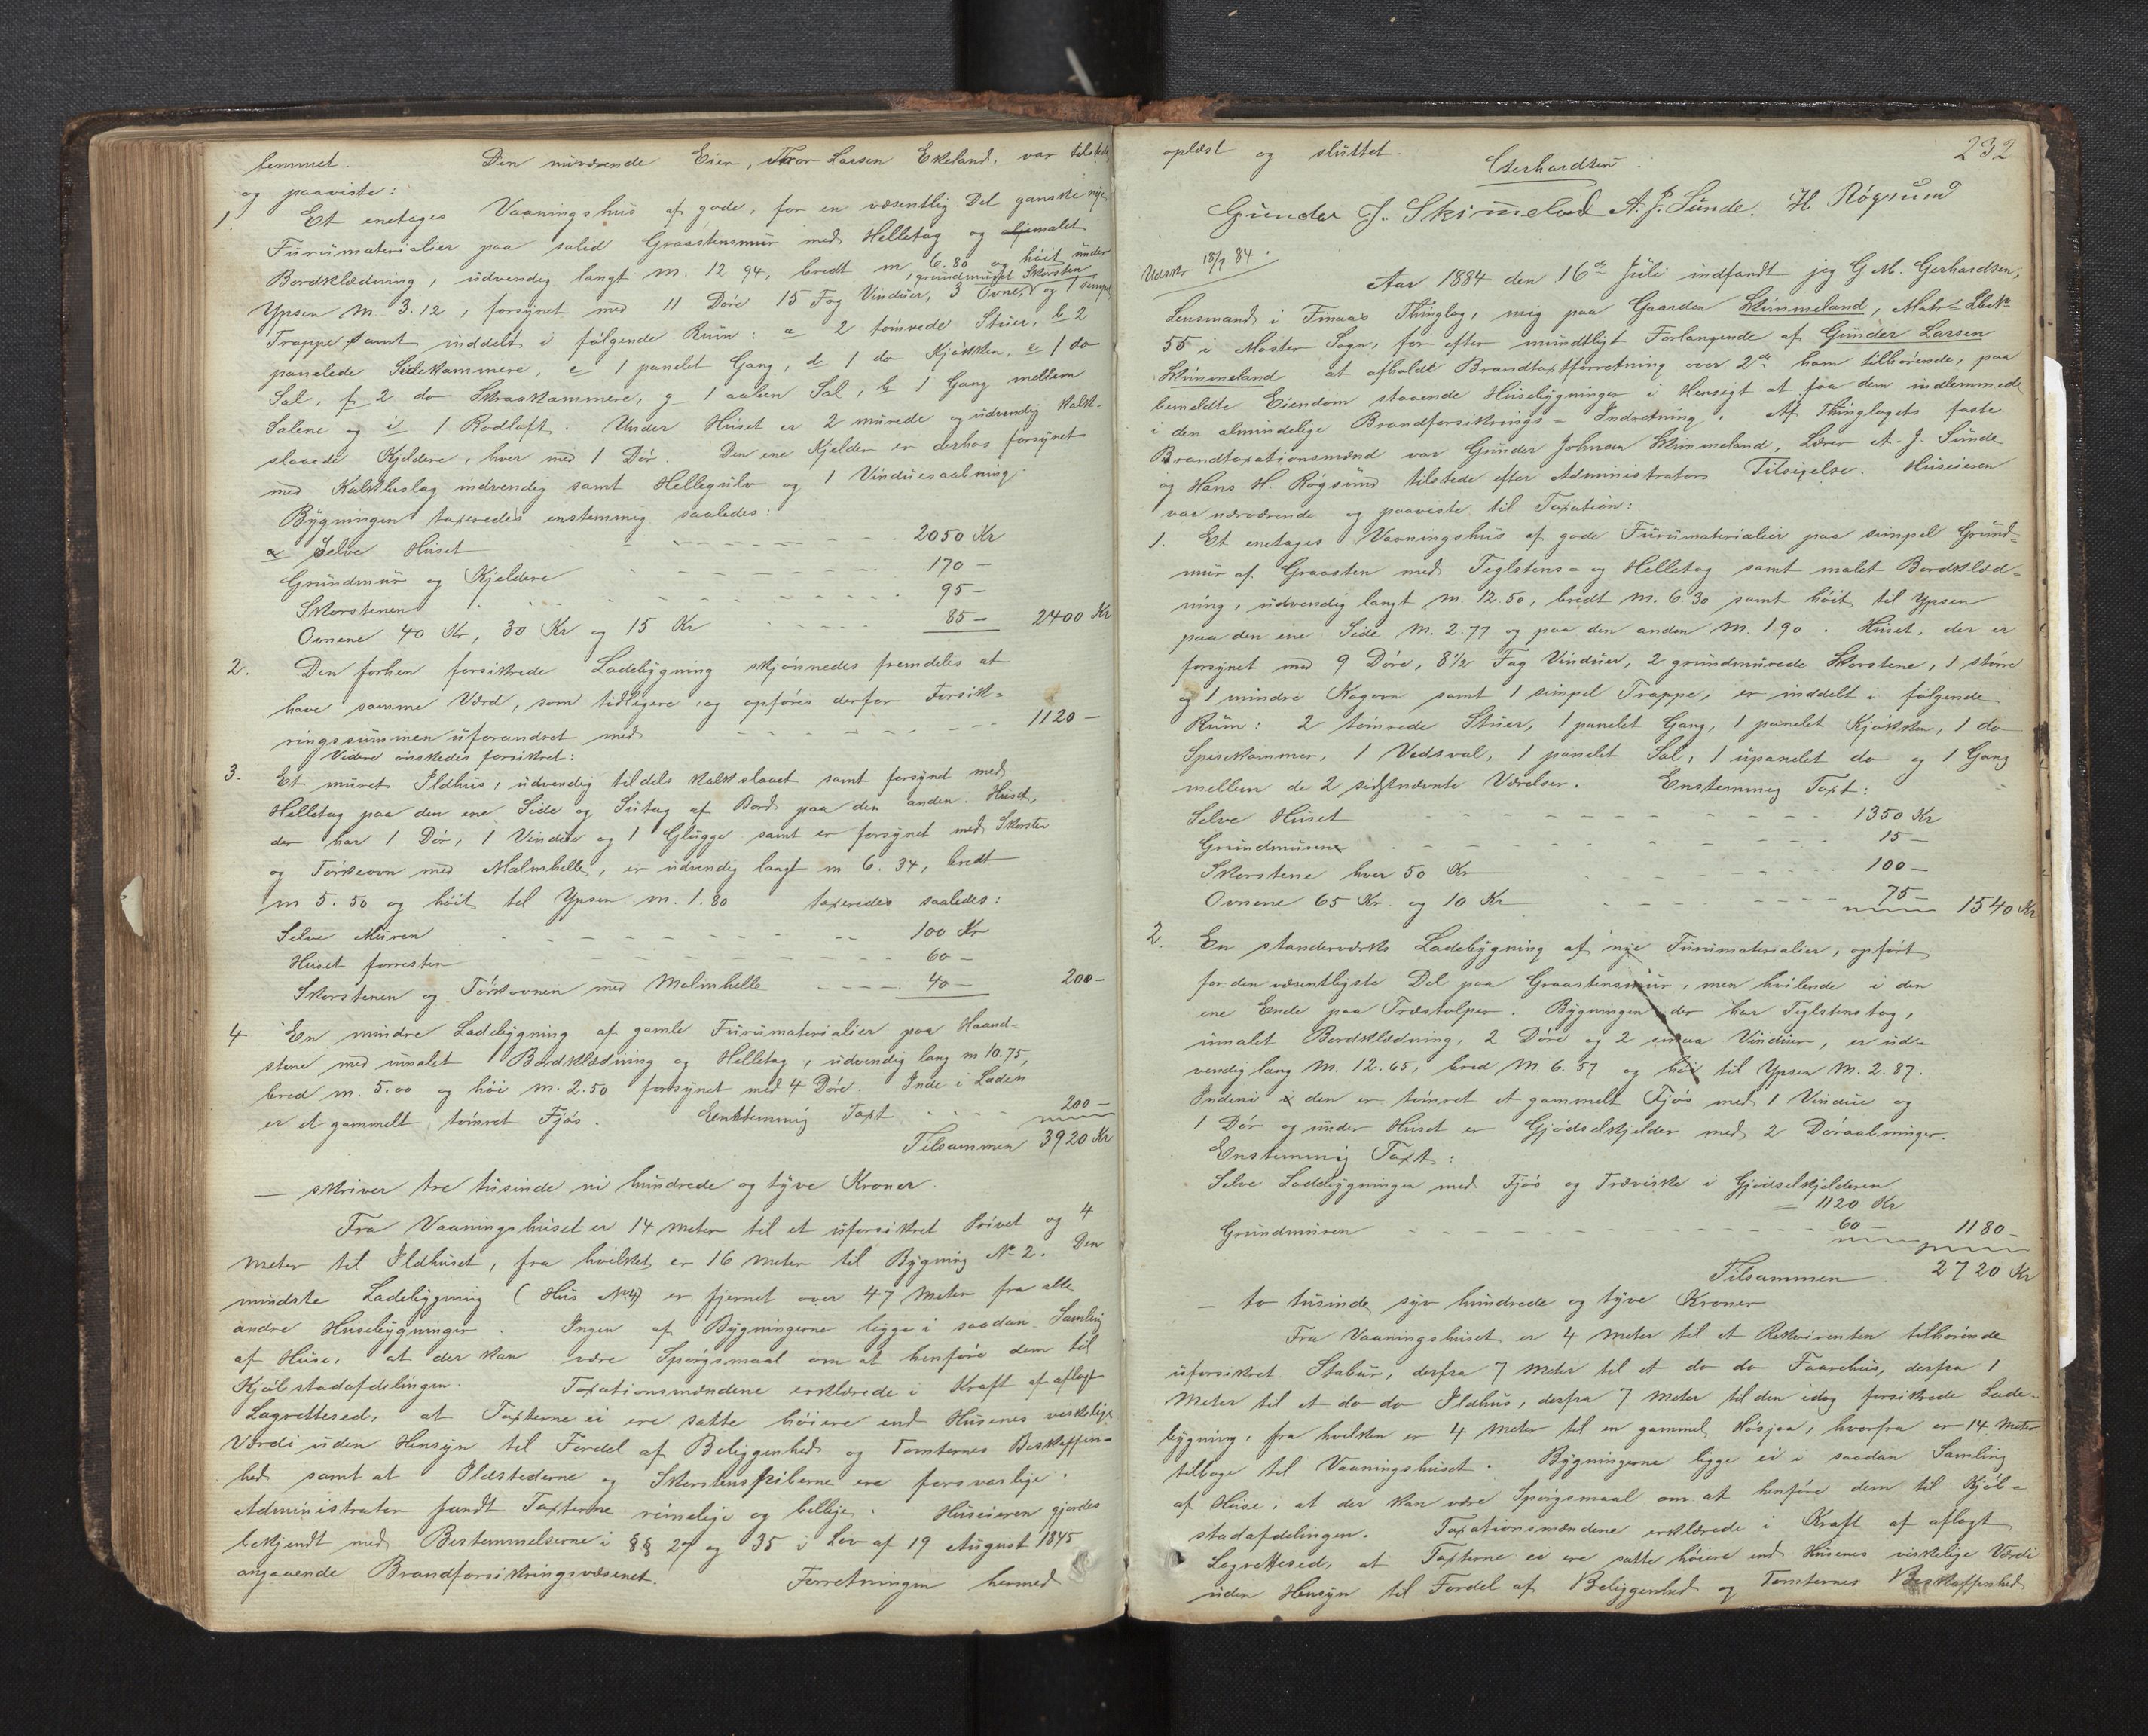 lemmet. Den nuværende Eier, Thor Larsen Ekeland, var tilstede
og paaviste:
1. Et enetages Vaaningshus af gode, for en væsentlig Del ganske nye
Furumaterialier paa solid Graastensmur med Helletag og malet
Bordklædning, udvendig langt m. 12 94, bredt m 6.80 og höit under
Ypsen m. 3.12, forsynet med 11 Döre 15 Fag Vinduer, 3 Ovne, grundmuret Skorsten og 1 simpel
Trappe samt inddelt i fölgende Rum: a 2 tömrede Stuer, b 2
panelede Sidekammere, c 1 panelet Gang, d 1 do Kjökken, e 1 do
Sal, f 2 do Skraakammere, g 1 aaben Sal, h 1 Gang mellem
Salene og i 1 Rodloft. Under Huset er 2 murede og udvendig kalk-
slaaede Kjeldere, hver med 1 Dör. Den ene Kjelder er derhos forsynet
med Kalkbeslag indvendig samt Hellegulv og 1 Vinduesaabning.
Bygningen taxeredes enstemmig saaledes:
a Selve Huset 2050 Kr
Grundmur og Kjeldere 170 -
Skorstenen 95 -
Ovnene 40 Kr, 30 Kr og 15 Kr 85 - 2400 Kr
2. Den forhen forsikrede Ladebygning skjönnedes fremdeles at
have samme Værd, som tidligere, og opföres derfor Forsik-
ringssummen uforandret med 1120 -
Videre önskedes forsikret:
3. Et muret Ildhus, udvendig tildels kalkslaaet samt forsynet med
Helletag paa den ene Side og Sutag af Bord paa den anden. Huset,
der har 1 Dör, 1 Vindue og 1 Glugge samt er forsynet med Skorsten
og Törkeovn med Malmhelle, er udvendig langt m 6.34, bredt
m 5.50 og höit til Ypsen m. 1.80 taxeredes saaledes:
Selve Muren 100 Kr
Huset forresten 60 -
Skorstenen og Törkeovnen med Malmhelle 40 - 200 -
4 En mindre Ladebygning af gamle Furumaterialier paa Haand-
stene med umalet Bordklædning og Helletag, udvendig lang m 10.75,
bred m. 5.00 og höi m. 2.50 forsynet med 4 Döre. Inde i Laden
er et gammelt, tömret Fjös. Eenstemmig Taxt 200 -
Tilsammen 3920 Kr
— skriver tre tusinde ni hundrede og tyve Kroner.
Fra Vaaningshuset er 14 Meter til et uforsikret Privet og 4
Meter til Ildhuset, fra hvilket er 16 Meter til Bygning No 2. Den
mindste Ladebygning (Hus No 4) er fjernet over 47 Meter fra alle
andre Husebygninger. Ingen af Bygningerne ligge i saadan Samling
af Huse, at der kan være Spörgsmaal om at henföre dem til
Kjöbstadafdelingen. Taxationsmændene erklærede i Kraft af aflagt
Lagrettesed, at Taxterne ei ere satte höiere end Husenes virkelige
Værdi uden Hensyn til Fordel af Beliggenhed og Tomternes Beskaffen-
hed samt at Ildstederne og Skorstenspiberne ere forsvarlige.
Administrator fandt Taxterne rimelige og billige. Huseieren gjordes
bekjendt med Bestemmelserne i §§ 27 og 35 i Lov af 19 August 1845
angaaende Brandforsikringsvæsenet. Forretningen hermed
232
oplæst og sluttet.
Gerhardsen.
Gunder J. Skimeland A. J. Sunde. H Rögsund
Udskr 18/7 84.
Aar 1884 den 16de Juli indfandt jeg G M. Gerhardsen,
Lensmand i Finaas Thinglag, mig paa Gaarden Skimmeland, Matr-Lbnr
55 i Moster Sogn, for efter mundtligt Forlangende af Gunder Larsen
Skimmeland at afholde Brandtaxtforretning over 2de ham tilhörende, paa
bemeldte Eiendom staaende Husebygninger i Hensigt at faa dem indlemmede
i den almindelige Brandforsikrings-Indretning. Af Thinglagets faste
Brandtaxationsmænd var Gunder Johnsen Skimmeland, Lærer A. J. Sunde
og Hans H. Rögsund tilstede efter Administrators Tilsigelse. Huseieren
var nærværende og paaviste til Taxation:
1. Et enetages Vaaningshus af gode Furumaterialier paa simpel Grund-
mur af Graasten med Teglstens- og Helletag samt malet Bordklæd-
ning, udvendig langt m. 12.50, bredt m. 6.30 samt höit til Ypsen
paa den ene Side m. 2.77 og paa den anden m. 1.90. Huset, der er
forsynet med 9 Döre, 8 1/2 Fag Vinduer, 2 grundmurede Skorstene, 1 större
og 1 mindre Kogovn samt 1 simpel Trappe, er inddelt i fölgende
Rum: 2 tömrede Stuer, 1 panelet Gang, 1 panelet Kjökken, 1 do
Spisekammer, 1 Vedsval, 1 panelet Sal, 1 upanelet do og 1 Gang
mellem de 2 sidstnævnte Værelser. Enstemmig Taxt:
Selve Huset 1350 Kr
Grundmuren 15 -
Skorstene hver 50 Kr 100 -
Ovnene 65 Kr. og 10 Kr 75 - 1540 Kr
2. En standerværks Ladebygning af nye Furumaterialier, opfört
for den væsentligste Del paa Graastensmur, men hvilende i den
ene Ende paa Træstolper. Bygningen der har Teglstenstag,
umalet Bordklædning, 2 Döre og 2 smaa Vinduer, er ud-
vendig lang m. 12.65, bred m. 6.57 og höi til Ypsen m. 2.87.
Indeni den er tömret et gammelt Fjös med 1 Vindue og
1 Dör og under Huset er Gjödselkjelder med 2 Döraabninger.
Enstemmig Taxt:
Selve Ladebygningen med Fjös og Træviske i Gjödselkjelderen
1120 Kr
Grundmuren 60 - 1180 -
Tilsammen 2720 Kr
— to tusinde syv hundrede og tyve Kroner
Fra Vaaningshuset er 4 Meter til et Rekvirenten tilhörende
uforsikret Stabur, derfra 7 Meter til et do do Faarehus, derfra 1
Meter til et do do Ildhus, derfra 7 Meter til den idag forsikrede Lade-
bygning, fra hvilken er 4 Meter til en gammel Hösjaa, hvorfra er 14 Meter
tilbage til Vaaningshuset. Bygningerne ligge ei i saadan Samling
af Huse, at der kan være Spörgsmaal om at henföre dem til Kjöb-
stadafdelingen. Taxationsmændene erklærede i Kraft af aflagt
Lagrettesed, at Taxterne ei ere satte höiere end Husenes virkelige Værdi
uden Hensyn til Fordel af Beliggenhed og Tomternes Beskaffenhed